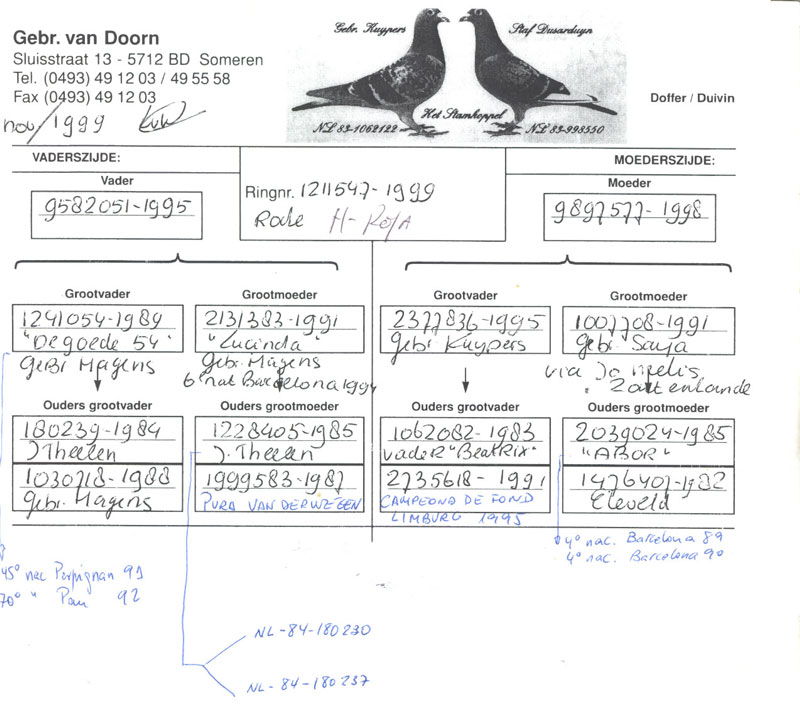 Gebr. van Doorn
Sluisstraat 13 - 5712 BD Someren
Tel. (0493) 49 12 03 / 49 55 58
Fax (0493) 49 12 03
nov/1999
Gebr. Kuypers
Staf Dusarduyn
Het Stamkoppel
NL 83-1062122
NL 83-998550
Doffer / Duivin
VADERSZIJDE:
MOEDERSZIJDE:
Vader
9582051-1995
Ringnr. 1211547-1999
Rode H-ROJA
Moeder
9897577-1998
Grootvader
1241054-1989
"De goede 54"
Gebr Hagens
Grootmoeder
2131383-1991
"Lucinda"
Gebr. Hagens
6e nat Barcelona 1994
Grootvader
2377836-1995
Gebr Kuypers
Grootmoeder
1007708-1991
Gebr. Sanja
via Jo
Zoutenlande
Ouders grootvader
180239-1984
J Theelen
1030718-1988
Gebr. Hagens
Ouders grootmoeder
1228405-1985
J. Theelen
1999583-1987
PURA VAN DER WEGEN
Ouders grootvader
1062082-1983
vader "Beatrix"
2735618-1991
CAMPEONA DE FOND
LIMBURG 1995
Ouders grootmoeder
2039024-1985
"ABOR"
1476407-1982
Eleveld
4º nac. Barcelona 89
4º nac. Barcelona 90
45º nac Perpignan 91
70º " Pau 92
NL-84-180230
NL-84-180237